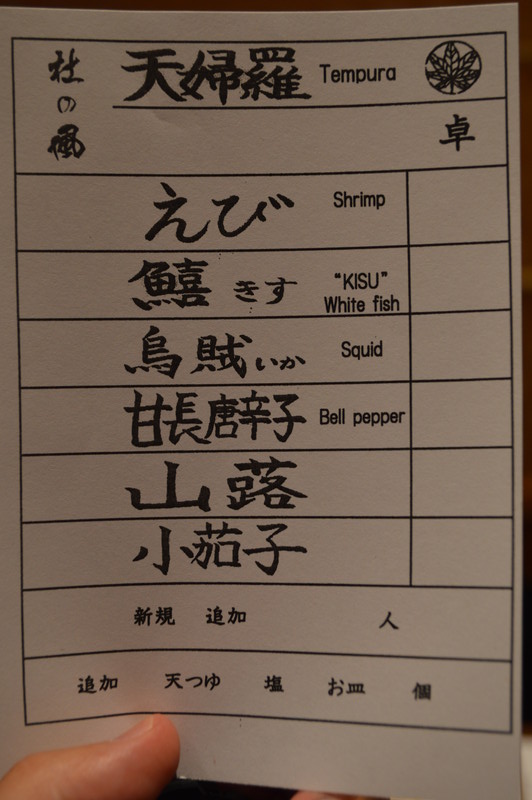 杜の風
天婦羅 Tempura
卓
えび Shrimp
鱚 きす "KISU" White fish
烏賊 いか Squid
甘長唐辛子 Bell pepper
山蕗
小茄子
新規 追加 人
追加 天つゆ 塩 お皿 個